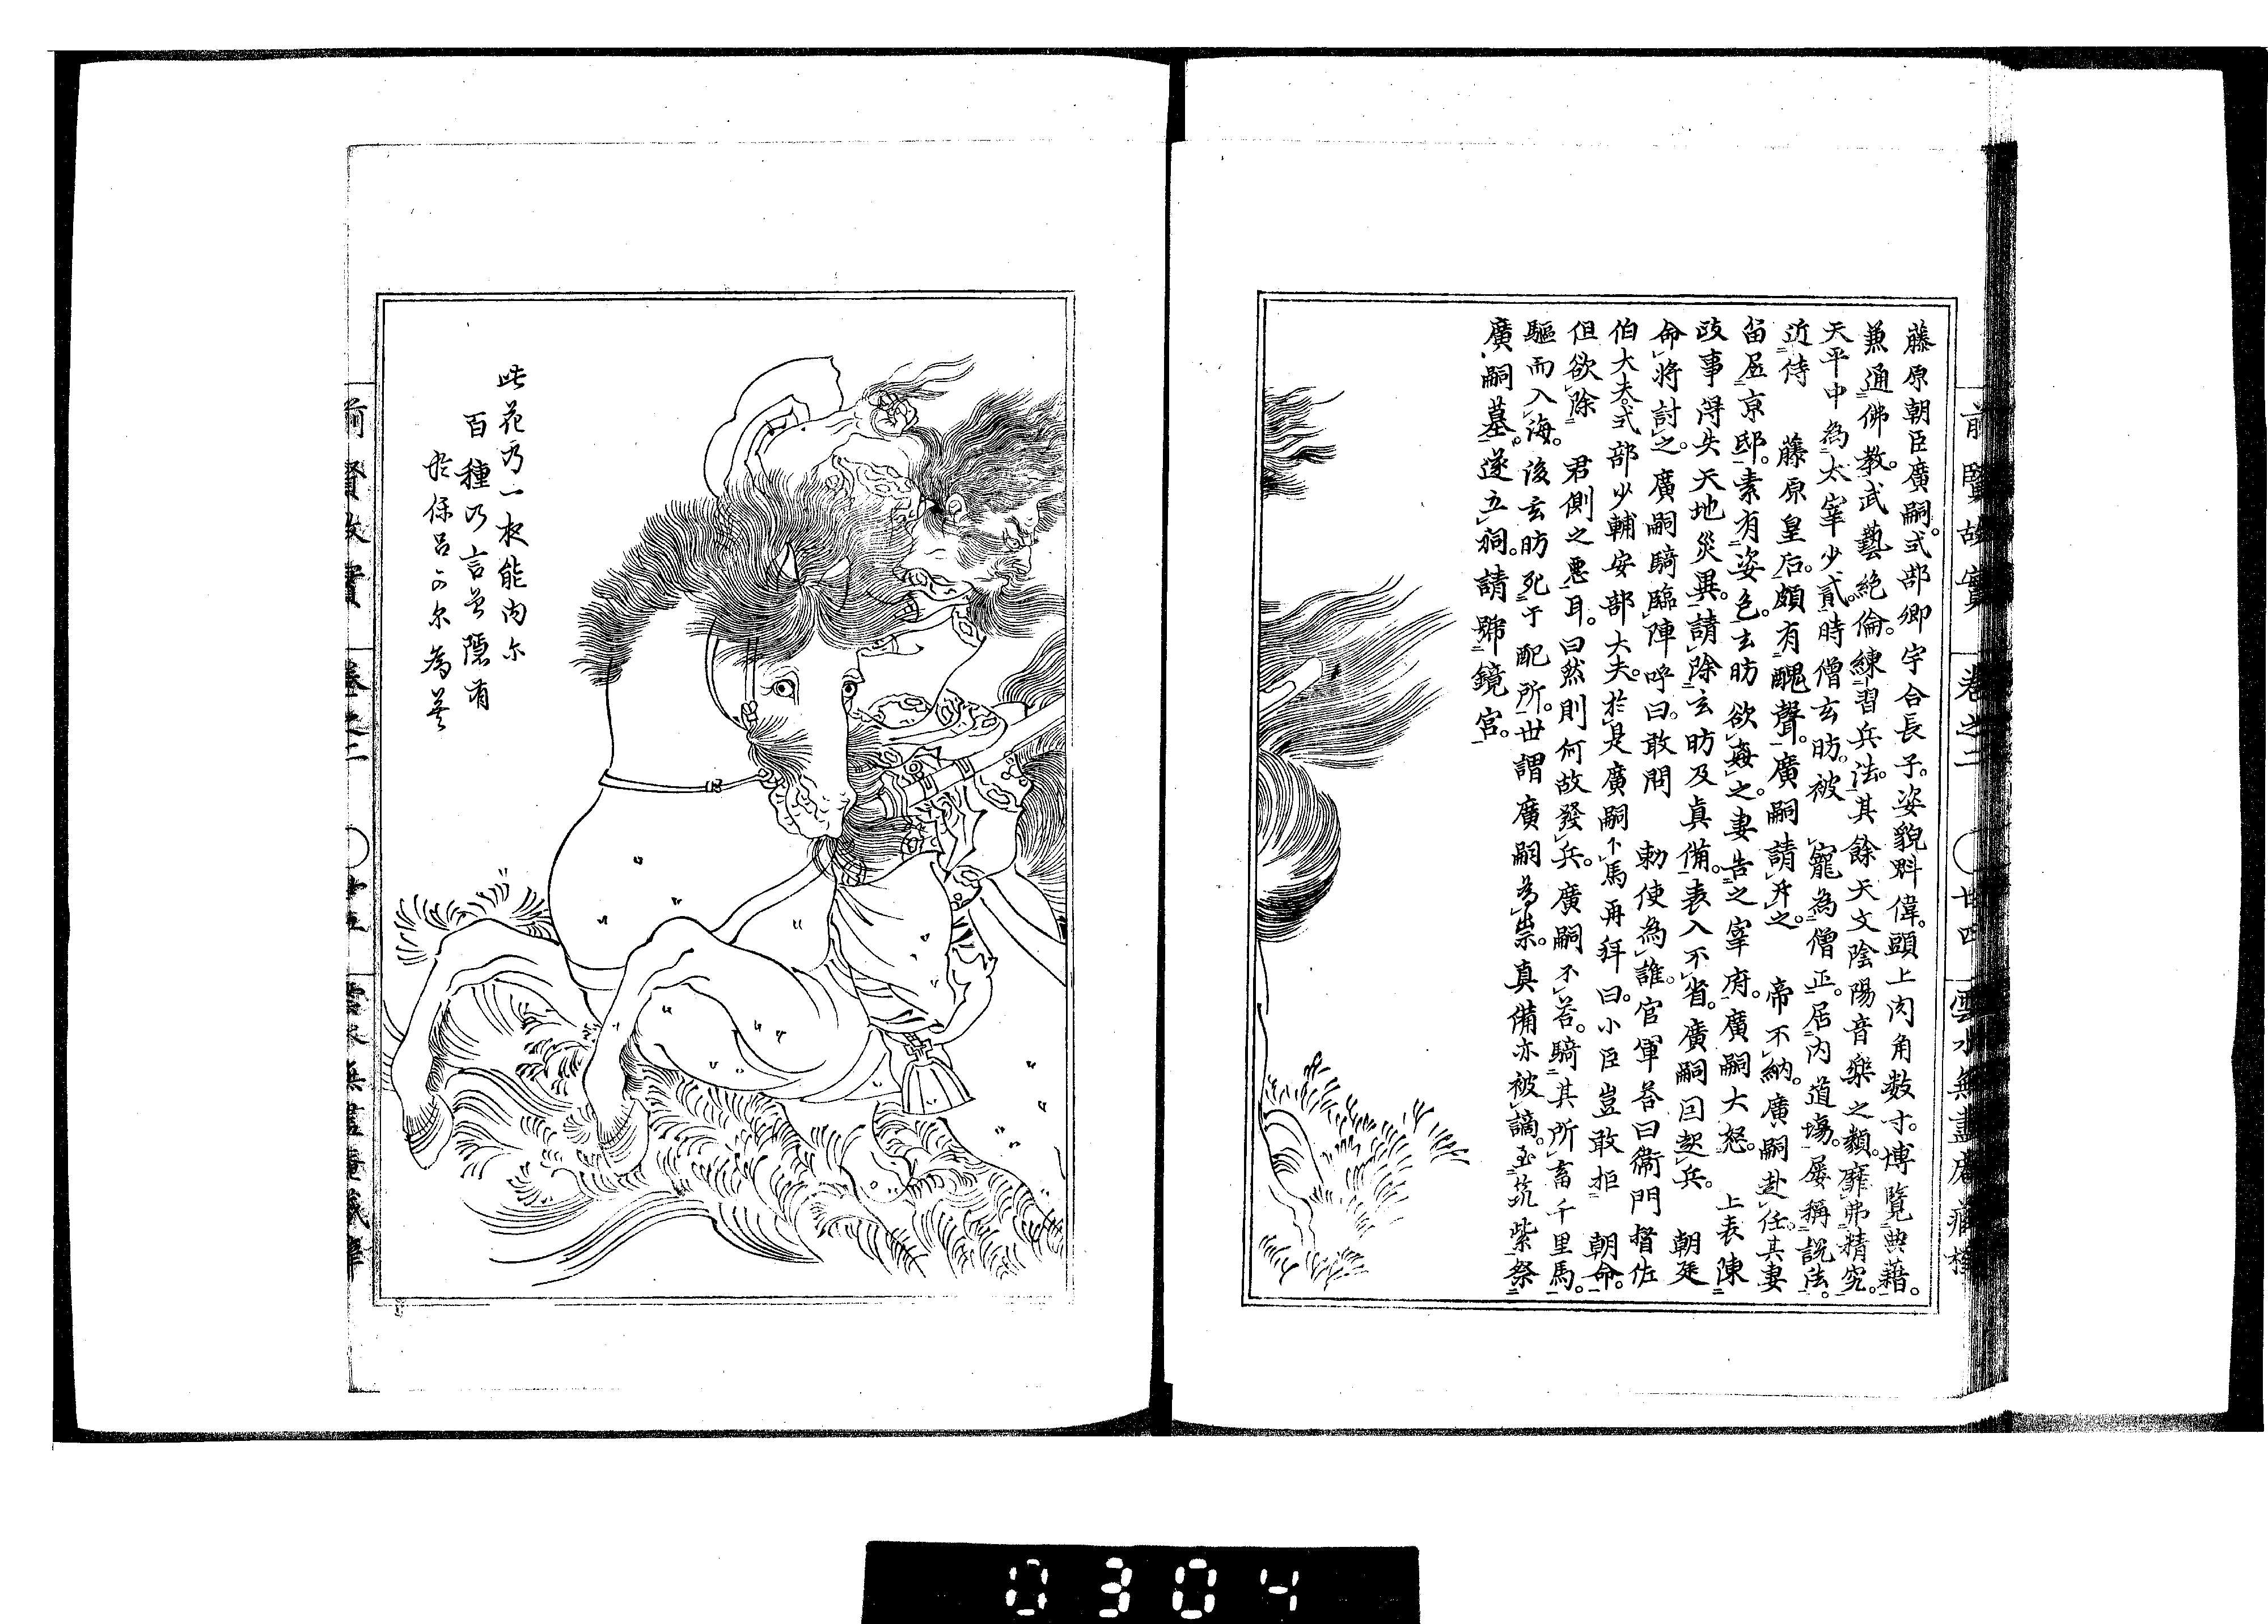 前賢故實 卷之二 〇廿四 雲水無盡庵藏梓
藤原朝臣廣嗣。式部卿宇合長子。姿貌魁偉。頭上肉角数寸。博覽典藉。
兼通佛教。武藝絶倫。練習兵法。其餘天文陰陽音樂之類。靡弗精究。
天平中為太宰少貳。時僧玄昉。被 寵為僧正。居內道塲。屡稱說法。
近侍 藤原皇后。頗有醜聲。廣嗣請斥之。 帝不納。廣嗣赴任。其妻
畄居京邸。素有姿色。玄昉欲姦之。妻告之宰府。廣嗣大怒。 上表陳
政事得失天地災異。請除玄昉及真備。表入不省。廣嗣囙起兵。 朝廷
命將討之。廣嗣騎臨陣。呼曰。敢問 勅使為誰。官軍荅曰衞門督佐
伯大夫。式部少輔安部大夫。於是廣嗣下馬再拜曰。小臣豈敢拒 朝命。
但欲除 君側之悪耳。曰然則何故發兵。廣嗣不荅。騎其所畜千里馬。
驅而入海。後玄昉死于配所。世謂廣嗣為祟。真備亦被謫。至筑紫祭
廣嗣墓。遂立祠。請號鏡宮。
此花乃一枝能内尓
百種乃言曽隱有
於保呂可尓為莫
前賢故實 卷之二 〇廿五 雲水無盡庵藏梓
0304